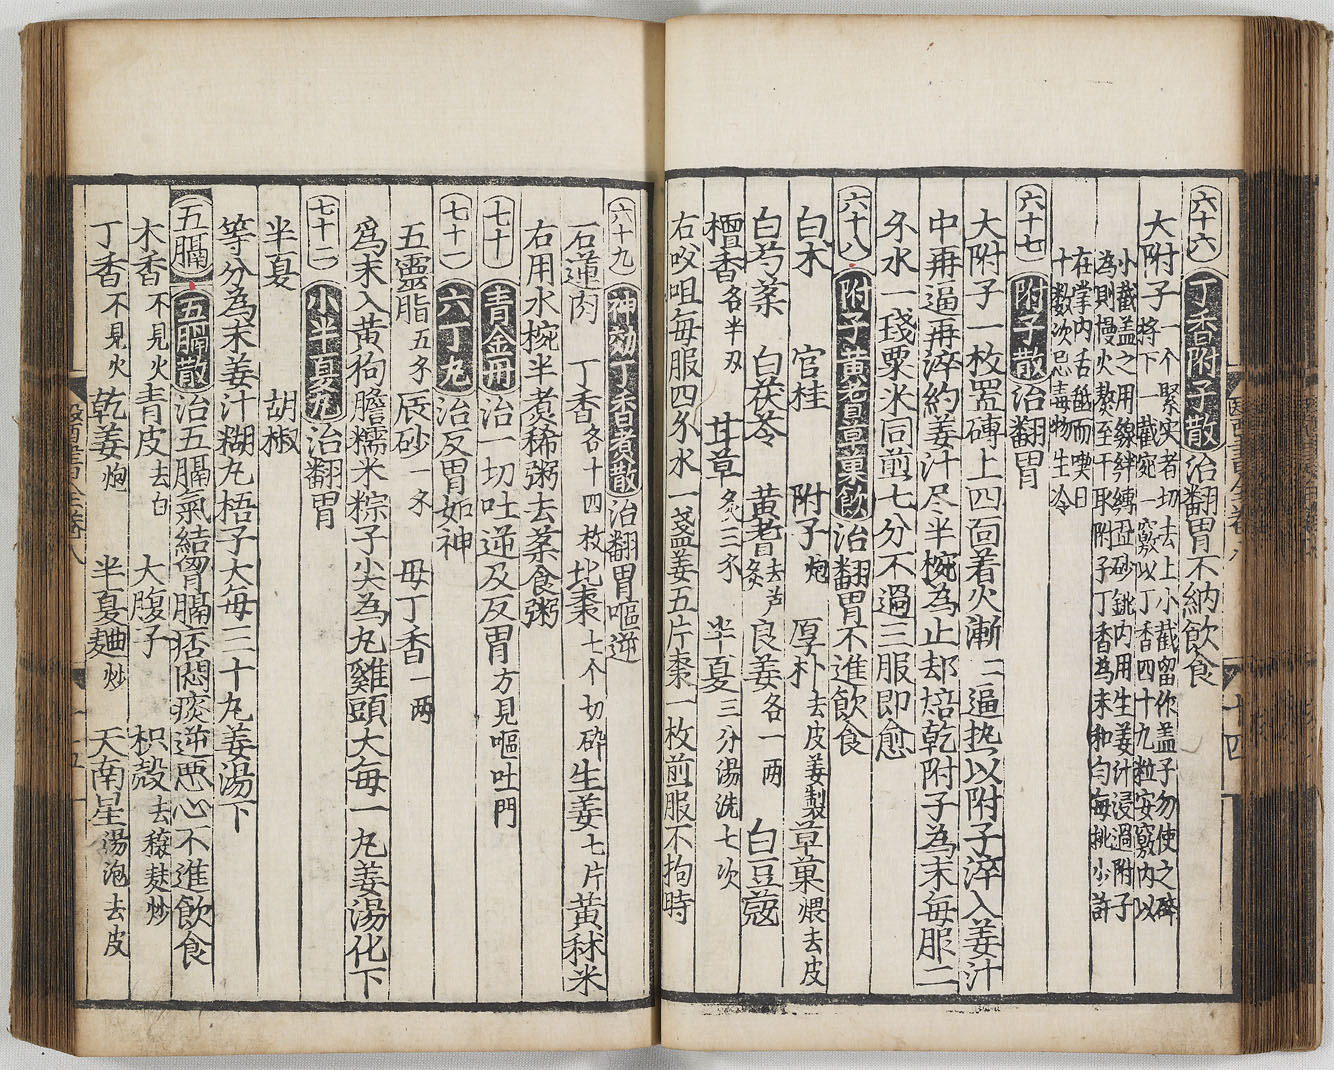 六十六 丁香附子散 治翻胃不納飲食
大附子一个緊实者切去上小截留作盖子勿使之碎
將下一截宛一竅以丁香四十九粒安竅内以
小截盖之用線絆縛盃砂銚内用生姜汁浸過附子
為則慢火熬至干取附子丁香為末和匀每挑少許
在掌内舌䑛而喫日
十数次忌毒物生冷
六十七 附子散 治翻胃
大附子一枚置磚上四面着火漸〻逼热以附子淬入姜汁
中再逼再淬約姜汁尽半椀為止却焙乾附子為末每服二
分水一琖粟米同煎七分不過三服即愈
六十八 附子黄老草菓飲 治翻胃不進飲食
白术 官桂 附子炮 厚朴去皮姜製 草菓煨去皮
白芍药 白茯苓 黄耆去芦炙 良姜各一两 白豆蔻
檀香各半刄 甘草炙三分 半夏三分湯洗七次
右㕮咀每服四分水一盞姜五片棗一枚煎服不拘時
六十九 神効丁香煮散 治翻胃嘔逆
石蓮肉 丁香各十四枚 北棗七个切碎 生姜七片 黄秫米
右用水椀半煮稀粥去药食粥
七十 青金丹 治一切吐逆及反胃方見嘔吐門
七十一 六丁丸 治反胃如神
五靈脂五分 辰砂一分 母丁香一两
為末入黄狗膽糯米粽子尖為丸雞頭大每一丸姜湯化下
七十二 小半夏丸 治翻胃
半夏 胡椒
等分為末姜汁糊丸梧子大每三十丸姜湯下
五膈 五膈散 治五膈氣結胷膈痞悶痰逆惡心不進飲食
木香不見火 青皮去白 大腹子 枳殻去穰麸炒
丁香不見火 乾姜炮 半夏麯炒 天南星湯泡去皮